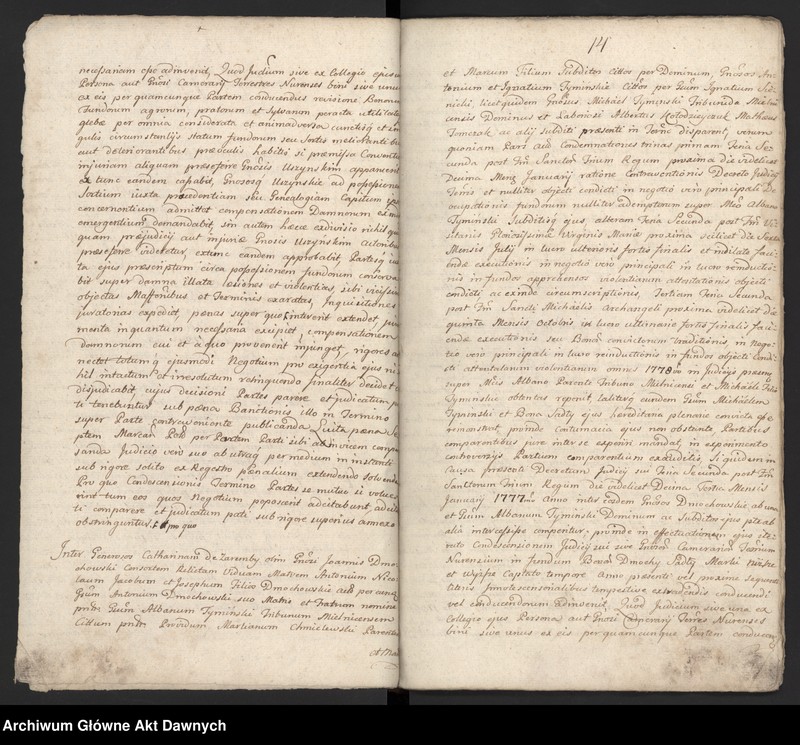 necessariam esse adinvenit, Quod Judicium sive ex Collegio ejus
Persona aut Gnosi Camerarij Terrestres Nurenses bini sive unus
ex eis per quamcunque Partem conducendus revisione Bonorum
Fundorum agrorum, pratorum et Sylvarum peracta utilitate
glebae per omnia considerata et animadversa cunctisque et
gulis circumstantijs statum fundorum seu Sortis meliorantibus
aut deteriorantibus prae oculis habitis si praemissa Conventio
injuriam aliquam praeseferre Gnosis Uszynskim apparuerit
ex tunc eandem cassabit, Gnososque Uszynskie ad possessionem
Sortium juxta procedentiam seu Genealogiam Capitum
concernentium admittet compensationem Damnorum
emergentium demandabit, sin autem haec exdivisio nihil
quam praejudicij aut injuriae Gnosis Uszynskim Actoribus
praeseferre videretur, extunc eandem approbabit, Partesque
ta ejus praescriptum circa possessionem fundorum conservabit
bit super damna illata laesiones et violentias, sibi vicissim
objectas Maffonibus et Terminis exaratas, Inquisitiones
juratorias expediet, paenas super quos intererit extendet, jura
menta in quantum necessaria excipiet, compensationem
damnorum cui et a quo provenerit injunget, rigores
nectet totumque ejusmodi Negotium pro exigentia ejus ni
hil intactum et irresolutum relinquendo finaliter decidet
disjudicabit, cujus decisioni Partes parere et judicatum pa
ti tenebuntur sub paena Bannitionis illo in Termino
super Parte contraveniente publicanda Luita paena
ptem Marcar. Pol. per Partem Parti sibi advincem compen
sanda Judicio vero suo ab utraque per medium in instanti
sub rigore solito ex Regestro paenalium extendendo solvenda
Pro quo Condescensionis Termino Partes se mutuo si voluerint
rint tum eos quos Negotium poposcerit adcitabunt, adcita
ti comparere et judicatum pati sub rigore superius annexo
obstringuntur. pro quo
Inter Generosos Catharinam de Zaremby olim Gnosi Joannis Dmo
chowski Consortem Relictam Viduam Matrem Antonium Nico
laum Jacobum et Josephum Filios Dmochowskie
Gsum Antonium Dmochowski suo Matris et Fratrum nomine
Gsum Albanum Tyminski Tribunum Mielnicensem
Cittum Providum Martianum Chmielewski Parentem
et Mar
14
et Marcum Filium Subditos Cittos per Dominum, Gnosos An
tonium et Ignatium Tyminskie Cittos per Gsum Ignatium
nicki, licet quidem Gnosus Michael Tyminski Tribunida Mielni
censis Dominus et Laboriosi Albertus Kołodzieyczuk Mathaeus
Tomczak ac alij Subditi praesenti in Termino disparent, verum
quoniam Pars aud Condemnationes trinas primam Feria Se
cunda post Fm Sanctor. Trium Regum proxima die videlicet
Decima Mensis Januarij ratione Contraventionis Decreto Judicij
Terris et nulliter objecti condicti in negotio vero principali De
ocupationis fundorum nulliter ademptorum super Mco Albano
Tyminski Subditisque ejus, alteram Feria Secunda post Fm Visi
tationis Beatissimae Virginis Mariae proxima scilicet die Sexta
Mensis Julij in lucro ulterioris fortis finalis et indilatae faci
endae executionis in negotio vero principali in lucro reinductio
nis in fundos apprehensos violantiarum attentationis objecti
condicti ac exinde circumscriptionis, Tertiam Feria Secunda
post Fm Sancti Michaelis Archangeli proxima videlicet die
quinta Mensis Octobris in lucro ultimario fortis finalis faci
endae executionis seu Bonorum convictorum traditionis, in Nego
tio vero principali in lucro reinductionis in fundos objecti Condi
cti attentatarum violantiarum omnes 1778vo in Judicijs praesen
super Mcos Albano Parente Tribuno Mielnicensi et Michaele Filio
Tyminskie obtentas reponit, taliterque eundem Gsum Michaelem
Tyminski et Bona Sadły ejus hereditaria plenarie convicta esse
remonstrat, proinde contumacia ejus non obstante Partibus
comparentibus jure inter se experiri mandat, in experimento
controversijs Partium comparentium exauditis, Si quidem in
Causa praesenti Decretum Judicij sui Feria Secunda post Fm
Sanctorum Trium Regum die videlicet Decima Tertia Mensis
Januarij 1777mo Anno inter eosdem Gnosos Dmochowskie ab una
et Gsum Albanum Tyminski Dominum ac Subditos ejus parte ab
alia intercessisse comperitur, proinde in effectuationem ejus ite
rato Condescensionem Judicij sui sive Gnosor. Camerarior. Terrium
Nurensium in fundum Bonor. Dmochy Sadły Martii
et Wysse Captato tempore Anno praesenti vel proxime sequente
litteris Innotescensialibus tempestive extradendis conducendi
vel conducendorum Adinvenit, Quod Judicium sive una ex
Collegio ejus Persona aut Gnosi Camerarij Terres Nurenses
bini sive unus ex eis per quamcunque Partem conducen
Archiwum Główne Akt Dawnych